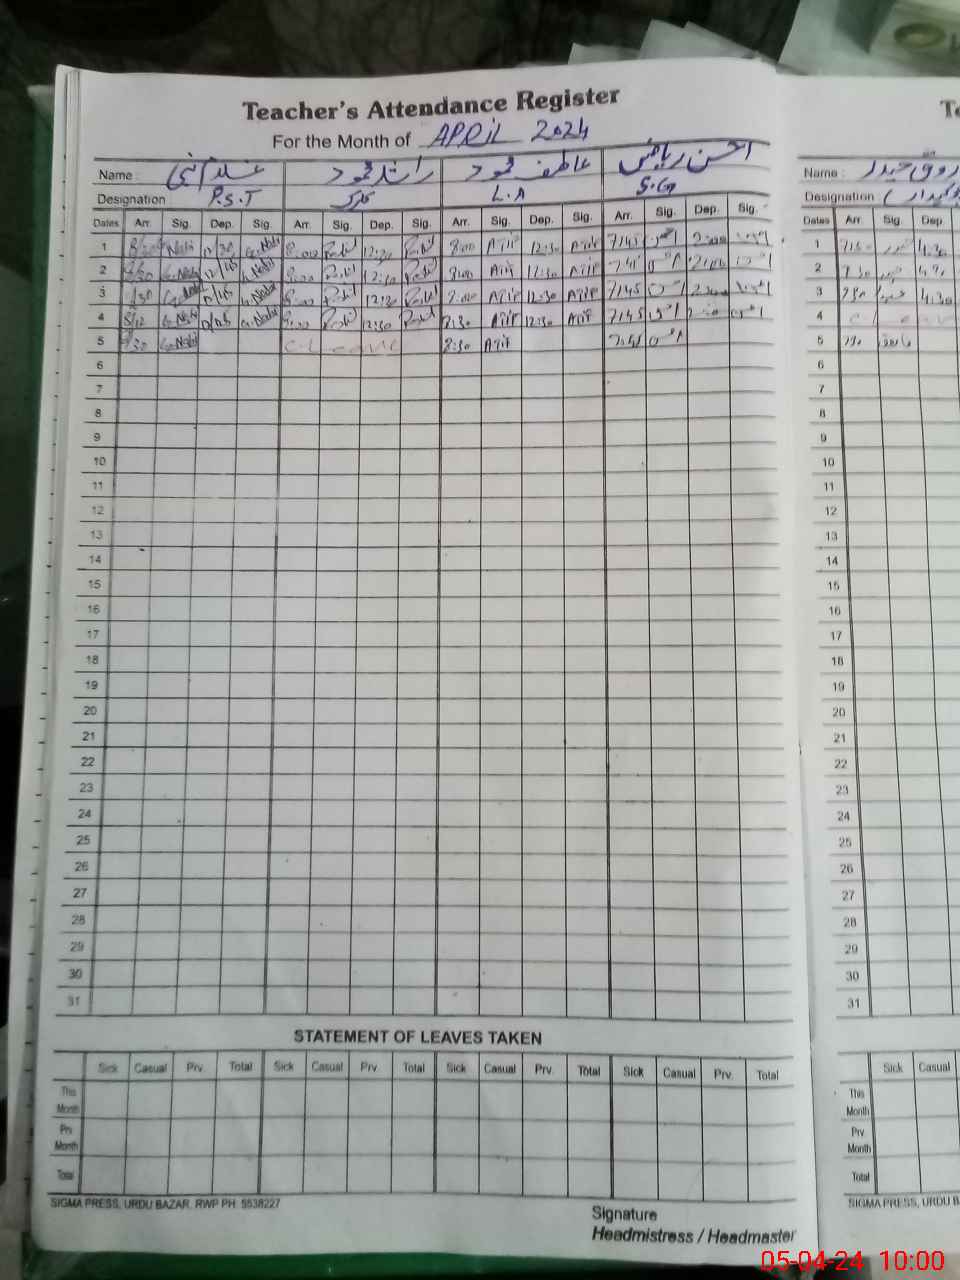 Teacher's Attendance Register
For the Month of APRIL 2024
Name : راشد محمود عاطف محمود احسن ریاض
Designation P.S.T کلرک L.A S.G
Dates Arr. Sig. Dep. Sig. Arr. Sig. Dep. Sig. Arr. Sig. Dep. Sig. Arr. Sig. Dep. Sig.
1 Nabi 12/30 G.Nabi 8:00 12:30 8:00 Atif 12:30 Atif 7:45 احسن 2:00 احسن
2 G.Nabi 12/15 G.Nabi 8:00 12:30 8:00 Atif 12:30 Atif 7:45 احسن 2:00 احسن
3 G.Nabi G.Nabi 8:00 12:30 8:00 Atif 12:30 Atif 7:45 احسن 2:00 احسن
4 G.Nabi G.Nabi 8:00 12:30 8:30 Atif 12:30 Atif 7:45 احسن احسن
5 G.Nabi C Leave 8:30 Atif 7:45 احسن
6
7
8
9
10
11
12
13
14
15
16
17
18
19
20
21
22
23
24
25
26
27
28
29
30
31
STATEMENT OF LEAVES TAKEN
Sick Casual Prv. Total Sick Casual Prv. Total Sick Casual Prv. Total Sick Casual Prv. Total
This Month
Prv Month
Total
SIGMA PRESS, URDU BAZAR, RWP PH: 5538227
Signature
Headmistress / Headmaster
Name : حیدر
Designation
Dates Arr. Sig. Dep.
1 7:30 4:30
2 7:30
3 7:30 4:30
4 C Leave
5
6
7
8
9
10
11
12
13
14
15
16
17
18
19
20
21
22
23
24
25
26
27
28
29
30
31
Sick Casual
This Month
Prv Month
Total
SIGMA PRESS, URDU
05-04-24 10:00